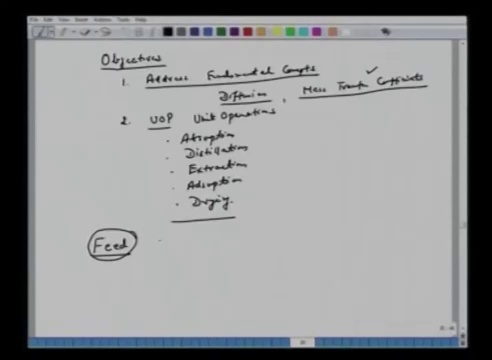 Objectives
1. Address Fundamental Concepts
Diffusion, Mass Transfer Coefficients
2. UOP Unit Operations
• Absorption
• Distillation
• Extraction
• Adsorption
• Drying.
Feed